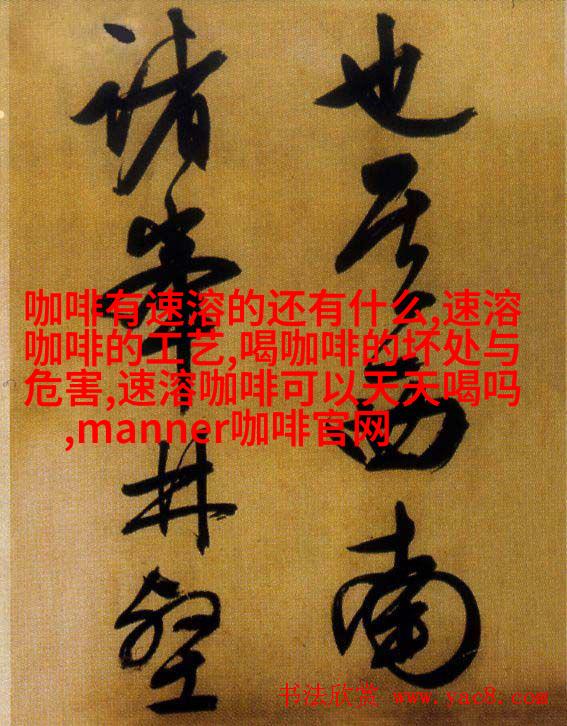 也其西南
諸峯林壑
咖啡有速溶的还有什么,速溶
咖啡的工艺,喝咖啡的坏处与
危害,速溶咖啡可以天天喝吗
,manner咖啡官网
书法欣赏 www.yac8.com